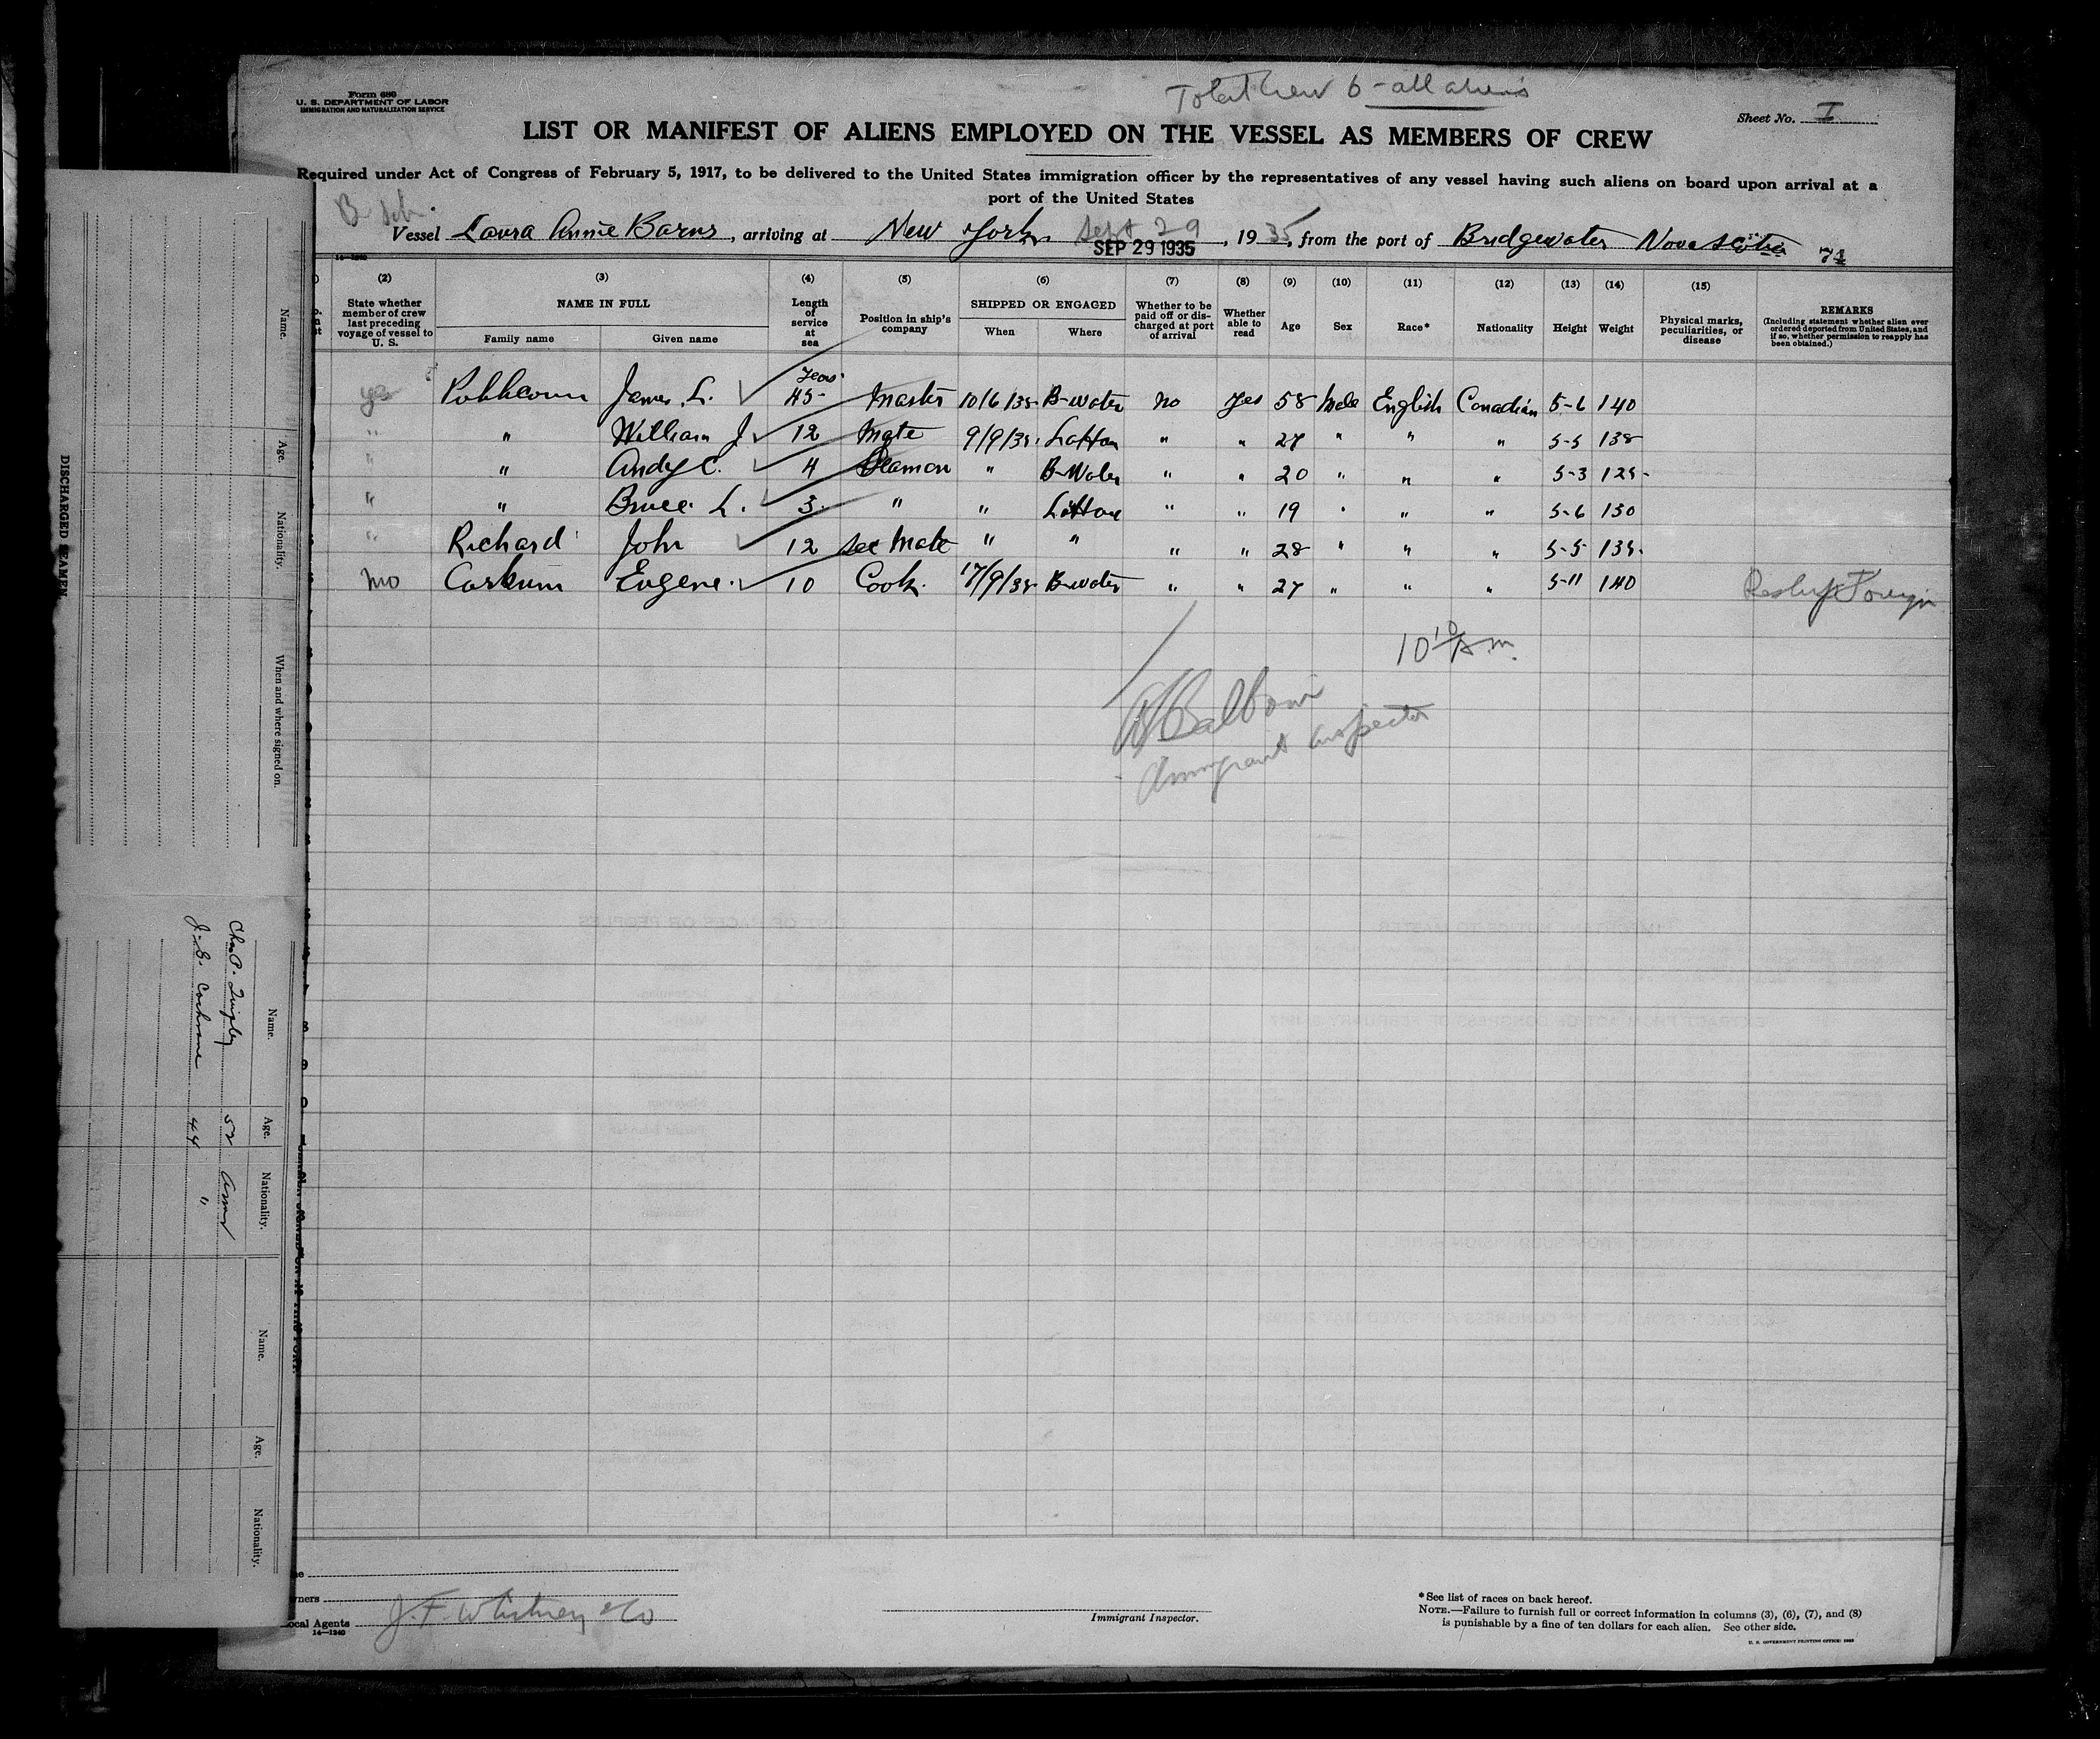 Total Crew 6 - all aliens
Form 680
U. S. DEPARTMENT OF LABOR
IMMIGRATION AND NATURALIZATION SERVICE
Sheet No. I
LIST OR MANIFEST OF ALIENS EMPLOYED ON THE VESSEL AS MEMBERS OF CREW
Required under Act of Congress of February 5, 1917, to be delivered to the United States immigration officer by the representatives of any vessel having such aliens on board upon arrival at a
port of the United States
B Sch.
Vessel Laura Annie Barns, arriving at New York Sept 29, 1935, from the port of Bridgewater Nova Scotia
SEP 29 1935
74
14-1240
(2) (3) (4) (5) (6) (7) (8) (9) (10) (11) (12) (13) (14) (15)
State whether member of crew last preceding voyage of vessel to U. S.
NAME IN FULL
Family name Given name
Length of service at sea
Position in ship's company
SHIPPED OR ENGAGED
When Where
Whether to be paid off or discharged at port of arrival
Whether able to read
Age Sex Race* Nationality Height Weight
Physical marks, peculiarities, or disease
REMARKS
(Including statement whether alien ever ordered deported from United States, and if so, whether permission to reapply has been obtained.)
years
yes James L. 45 Master 10/6/35 B-water no yes 58 Male English Canadian 5-6 140
" " William J 12 Mate 9/9/35 " " 27 " " " 5-5 138
" " Andy C. 4 Seaman " B-Water " " 20 " " " 5-3 125
" " Bruce L. 3 " " " " 19 " " " 5-6 130
" Richard John 12 Sec Mate " " " " 28 " " " 5-5 135
no Corkum Eugene 10 Cook 17/9/35 B-water " " 27 " " " 5-11 140 Reship Foreign
10 10 A.m.
Immigrant Inspector
DISCHARGED SEAMEN
Name. Age. Nationality. When and where signed on.
Name. Age. Nationality.
Chas. P. Quigley 52 Amer
J. S. Cochrane 44 "
Name. Age. Nationality.
Local Agents J. F. Whitney & Co
14-1240
Immigrant Inspector.
*See list of races on back hereof.
NOTE.—Failure to furnish full or correct information in columns (3), (6), (7), and (8)
is punishable by a fine of ten dollars for each alien. See other side.
U. S. GOVERNMENT PRINTING OFFICE: 1933